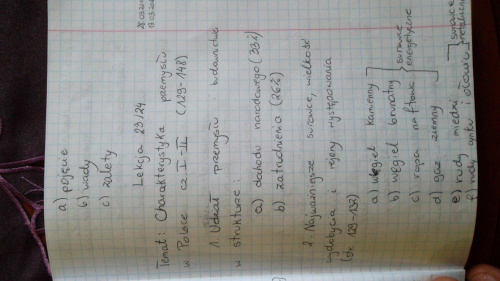 a) pojęcie
b) wady
c) zalety
28.03.20
17.03.20
Lekcja 23/24
Temat: Charakterystyka przemysłu
w Polsce cz. I i II (129-148)
1. Udział przemysłu i budownictwa
w strukturze:
a) dochodu narodowego (33%)
b) zatrudnienia (26%)
2. Najważniejsze surowce, wielkość
wydobycia i rejony występowania
(str. 129-132)
a) węgiel kamienny
b) węgiel brunatny
c) ropa naftowa
d) gaz ziemny
surowce
energetyczne
e) rudy miedzi
f) rudy cynku i ołowiu
surowce